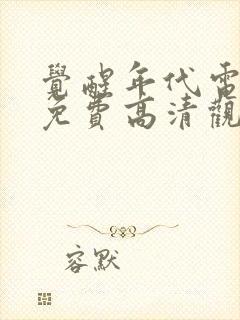 覺醒年代電
免費高清觀
容默